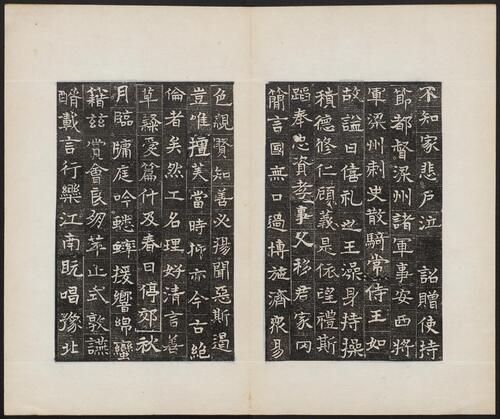 不知家悲戶泣　詔贈使持
節都督梁州諸軍事安西將
軍梁州刺史散騎常侍王如
故謚曰僖礼也王澡身持操
積德修仁顧義是依望禮斯
蹈奉忠資孝事父移君家內
簡言國無口過博施濟衆易
色親賢知善必揚聞惡斯遏
豈唯擅美當時抑亦今古絕
倫者矣然工名理好清言善
草隸愛篇什及春日停郊秋
月臨牖庭吟蟋蟀援響綿蠻
籍茲賞會良朋萃止式敦讌
醑載言行樂江南既唱豫北